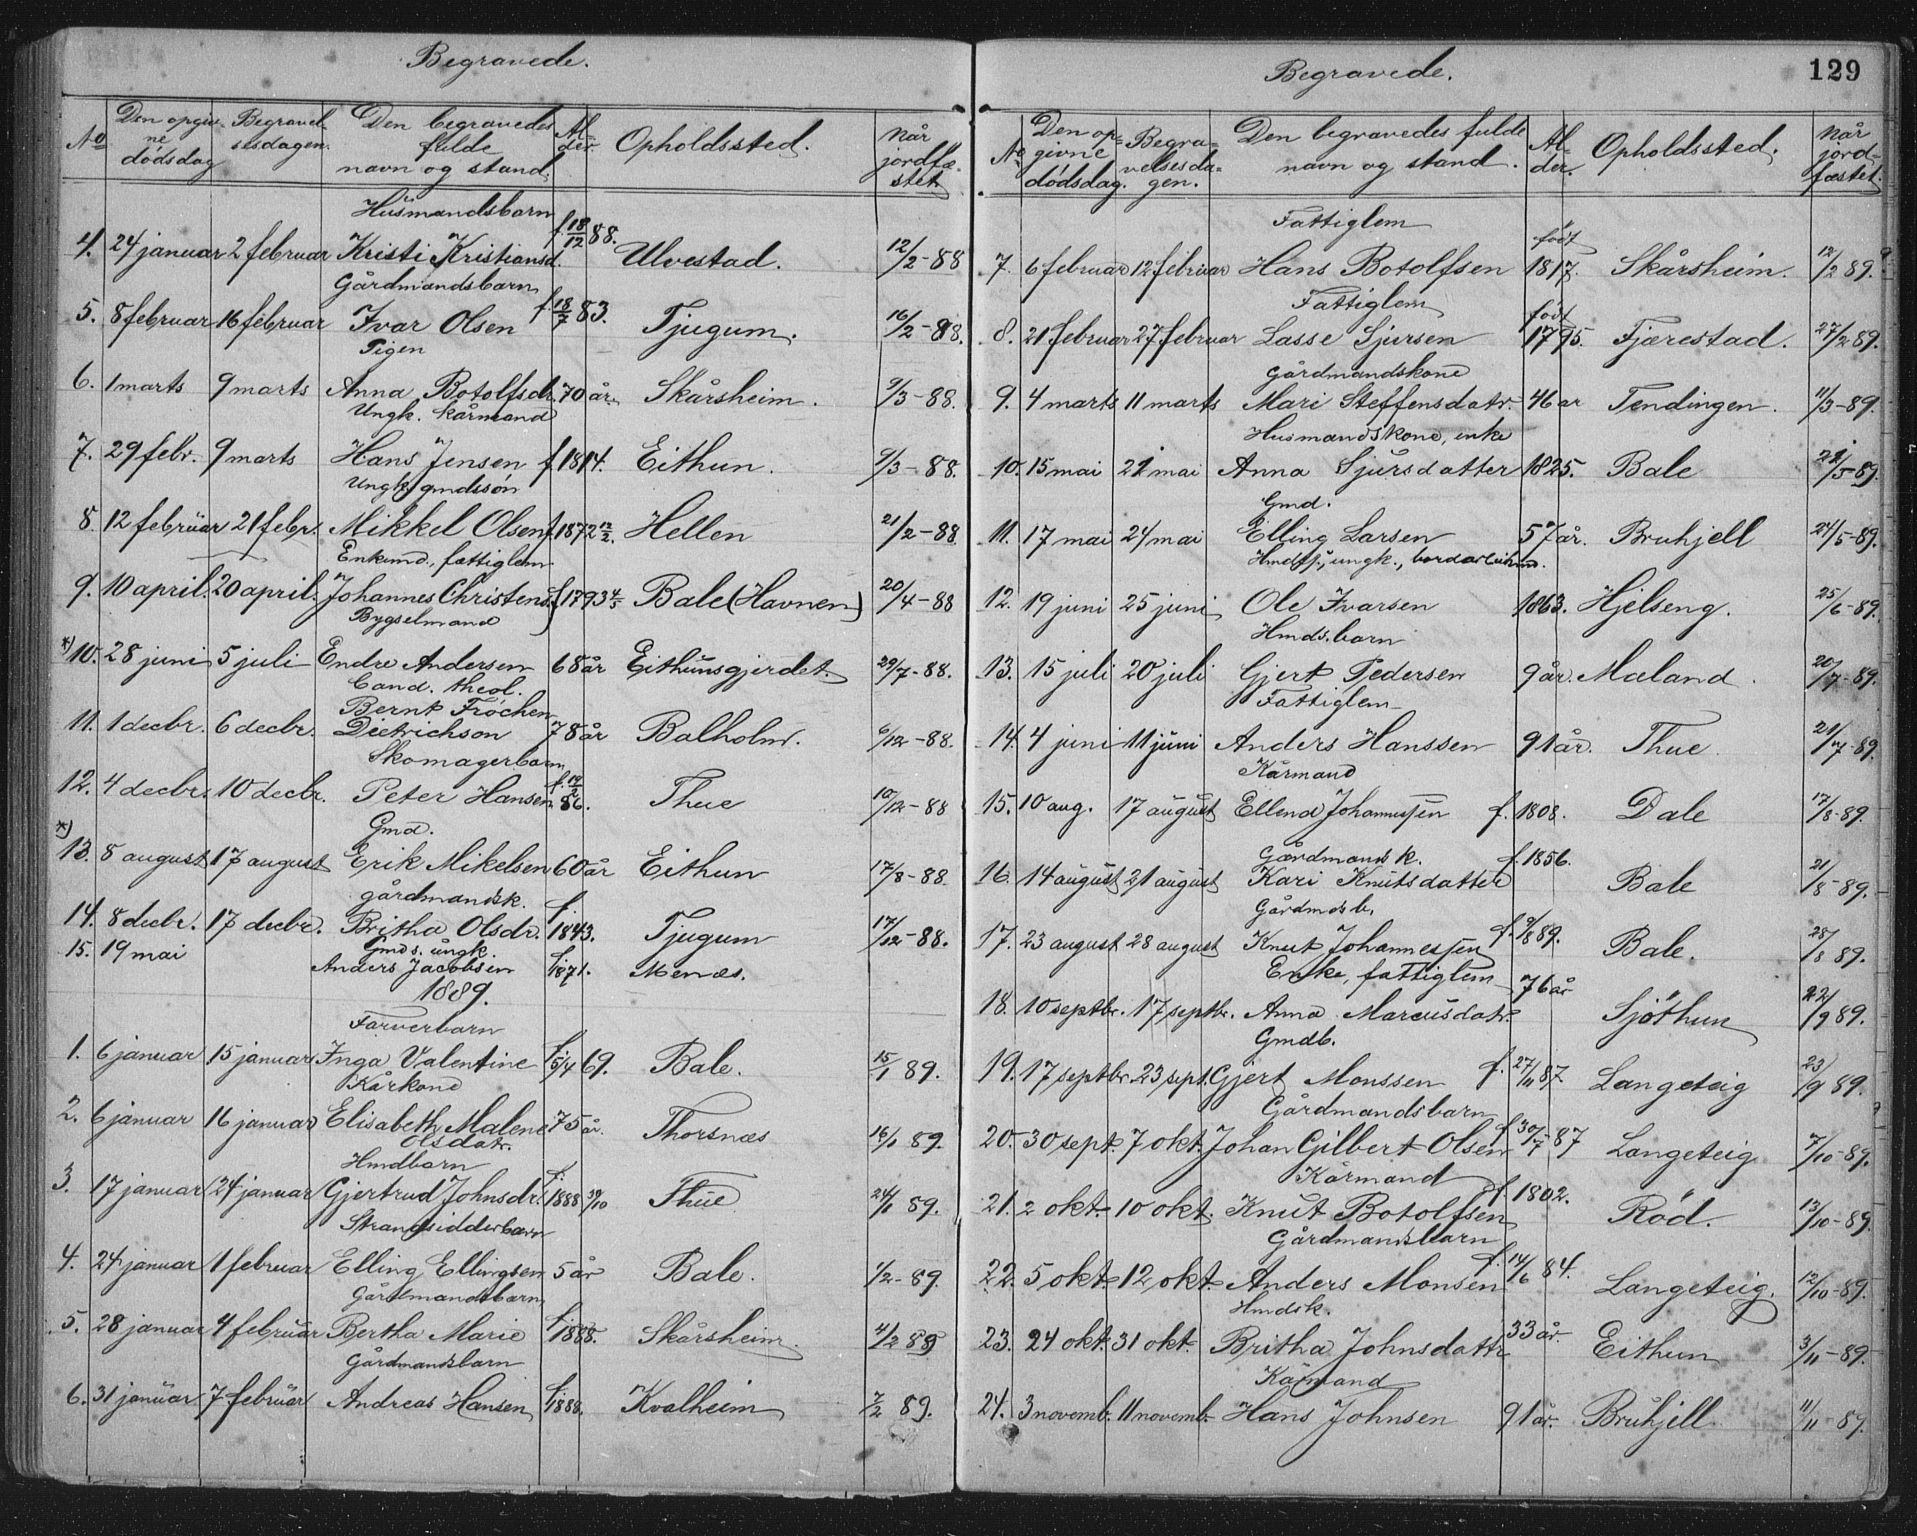 Begravede.
No Den opgivne dødsdag Begravelsesdagen. Den begravedes fulde navn og stand. Alder. Opholdssted. Når jordfæstet
Husmandsbarn
4. 24 januar 2 februar Kristi Kristiansd. f. 18/12 88. Ulvestad. 12/2-88
Gårdmandsbarn
5. 8 februar 16 februar Ivar Olsen f. 18/7 83. Tjugum. 16/2-88.
Pigen
6. 1 marts 9 marts Anna Botolfsdr. 70 år. Skårsheim. 9/3-88.
Ungk. kårmand
7. 29 febr. 9 marts Hans Jensen f. 1814. Eithun. 9/3-88.
Ungk. gmdssøn
8. 12 februar 21 febr. Mikkel Olsen f. 1872 12/2. Hellen 21/2-88
Enkemd., fattiglem
9. 10 april. 20 april. Johannes Christens. f. 1793 4/5 Bale (Havnen) 20/4-88
Bygselmand
*) 10. 28 juni 5 juli Endre Andersen 68 år Eithunsgjerdet. 29/7-88.
Cand. theol.
Bernt Fröchen
11. 1 decbr. 6 decbr. Dietrichson 78 år Balholm. 6/12-88.
Skomagerbarn
12. 4 decbr. 10 decbr. Peter Hansen 86. Thue 10/12-88
Gmd.
*) 13. 8 august 17 august Erik Mikelsen 60 år Eithun 17/8-88.
gårdmandsk.
14. 8 decbr. 17 decbr. Britha Olsdr. f. 1843. Tjugum 17/12-88.
Gmds. ungk.
15. 19 mai Anders Jacobsen f. 1871. Menæs.
1889.
Farverbarn
1. 6 januar 15 januar Inga Valentine f. 5/4 69. Bale. 15/1 89.
Kårkone
2. 6 januar 16 januar Elisabeth Malene 75 år. Thorsnæs 16/1 89.
Olsdat.
Hmdbarn
3. 17 januar 24 januar Gjertrud Johnsdr. f. 1888 30/10 Thue 24/1 89.
Strandsidderbarn
4. 24 januar 1 februar Elling Ellingsen 5 år Bale. 1/2-89.
Gårdmandsbarn
5. 28 januar 4 februar Bertha Marie f. 1888. Skårsheim. 4/2 89
Gårdmandsbarn
6. 31 januar 7 februar Andreas Hansen f. 1888. Kvalheim 7/2 89.
Begravede. 129
No Den opgivne dødsdag. Begravelsesdagen. Den begravedes fulde navn og stand. Alder. Opholdssted. Når jordfæstet.
Fattiglem
7. 6 februar 12 februar Hans Botolfsen født 1817. Skårsheim. 12/2 89.
Fattiglem
8. 21 februar 27 februar Lasse Sjursen født 1795. Fjærestad. 27/2 89.
Gårdmandskone
9. 4 marts 11 marts Mari Steffensdatr. 46 ar Tendingen. 11/3-89.
Husmandskone, enke
10. 15 mai 21 mai Anna Sjursdatter 1825. Bale 21/5-89.
Gmd.
11. 17 mai 24 mai Elling Larsen 57 år. Bruhjell 24/5-89.
ungk.,
12. 19 juni 25 juni Ole Ivarsen 1863. Hjelseng. 25/6-89.
Hmds. barn
13. 15 juli 20 juli Gjert Pedersen 9 år. Mæland. 20/7-89.
Fattiglem
14. 4 juni 11 juni Anders Hanssen 91 år. Thue. 21/7-89.
Kårmand
15. 10 aug. 17 august Ellend Johannessen f. 1808. Dale 17/8-89.
Gårdmandsk.
16. 14 august 21 august Kari Knutsdatter f. 1856. Bale 21/8-89.
Gårdmdsb.
17. 23 august 28 august Knut Johannessen f. 9/8 89. Bale. 28/8 89.
Enke, fattiglem
18. 10 septbr. 17 septbr. Anna Marcusdatr. 76 år Sjøthun 22/9 89.
Gmdb.
19. 17 septbr. 23 sept. Gjert Monssen f. 27/11 87. Langeteig 23/9 89.
Gårdmandsbarn
20. 30 sept. 7 okt. Johan Gilbert Olsen f. 30/7-87 Langeteig 7/10-89.
Kårmand
21. 2 okt. 10 okt. Knut Botolfsen f. 1802. Röd. 13/10-89.
Gårdmandsbarn
22. 5 okt. 12 okt. Anders Monsen f. 14/6 84. Langeteig. 12/10-89.
Hmdsk.
23. 24 okt. 31 okt. Britha Johnsdattr 33 år. Eithun 3/11-89.
Kårmand
24. 3 novemb. 11 novemb. Hans Johnsen 91 år. Bruhjell. 11/11-89.